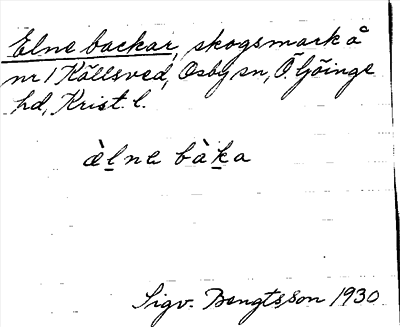 Elne backar, skogsmark å
nr 1 Källsved, Osby sn, Ö. Göinge
hd, Krist. l.
è̱lne bàḵa
Sigv. Bengtsson 1930